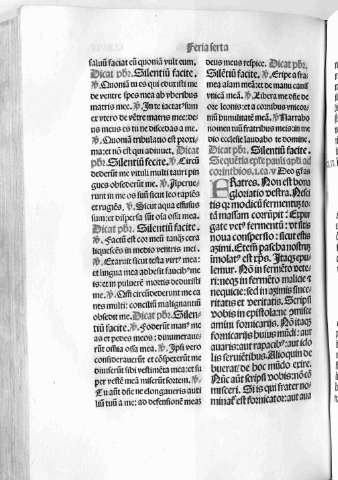 Feria sexta
saluū faciat eū quoniā vult eum.
Dicat pbr. Silentiū facite.
℣. Quoniā tu es qui extraxisti me
de ventre: spes mea ab vberibus
matris mee. ℣. In te iactat⁹ sum
ex vtero: de vētre matris mee: de-
us meus es tu ne discedas a me.
℣. Quoniā tribulatio est proxi-
ma: et nō est qui adiuuet. Dicat
pbr. Silentiū fecite. ℣. Circū
dederūt me vituli multi: tauri pin
gues obsederūt me. ℣. Aperue-
runt in me os suū: sicut leo rapiēs
et rugiēs. ℣. Sicut aqua effusus
sum: et dispersa sūt oīa ossa mea.
Dicat pbr. Silentiū facite.
℣. Factū est cor meū tanq̄ cera
liquescēs in medio ventris mei.
℣. Exaruit sicut testa virt⁹ mea:
et lingua mea adhesit faucib⁹ me
is: et in puluerē mortis deduxisti
me. ℣. Qm̄ circūdederunt me ca
nes multi: conciliū malignantiū
obsedit me. Dicat pbr. Silen-
tiū facite. ℣. Foderūt man⁹ me
as et pedes meos: dinumeraue-
rūt omnia ossa mea. ℣. Ipsi vero
considerauerūt et cōspexerūt me
diuiserūt sibi vestimēta mea: et su
per vestē meā miserūt sortem. ℣.
Tu aūt dn̄e ne elongaueris auxi
liū tuū a me: ad defensionē meā
deus meus respice. Dicat pbr.
Silētiū facite. ℣. Eripe a fra-
mea aīam meā: et de manu canis
vnicā meā. ℣. Libera me dn̄e de
ore leonis: et a cornibus vnicor-
niū humilitatē meā. ℣. Narrabo
nomen tuū fratribus meis: in me
dio ecclesie laudabo te domine.
Dicat pbr. Silentiū facite.
Sequētia epl̄e pauli apl̄i ad
corinthios. i. ca. v Deo gr̄as
FRatres. Non est bona
gloriatio vestra. Nesci
tis q̄ modicū fermentū to
tā massam corrūpit? Expur
gate vet⁹ fermentū: vt sitis
noua conspersio: sicut estis
azimi. Eteni pascha nostrū
imolat⁹ est xp̄s. Itaq̄ epu
lemur. Nō in fermēto vete-
ri: neq̄ in fermēto malicie et
nequicie: sed in azimis since-
ritatis et veritatis. Scripsi
vobis in epistola: ne cōmisce
amini fornicarijs. Nō itaq̄
fornicarijs huius mūdi: aut
auaris: aut rapacib⁹: aut idol
lis seruiētibus. Alioquin de
buerat⁹ de hoc mūdo exire.
Nūc aūt scripsi vobis: nō cō
misceri. Si is qui frater no-
minat⁹ est fornicator: aut aua